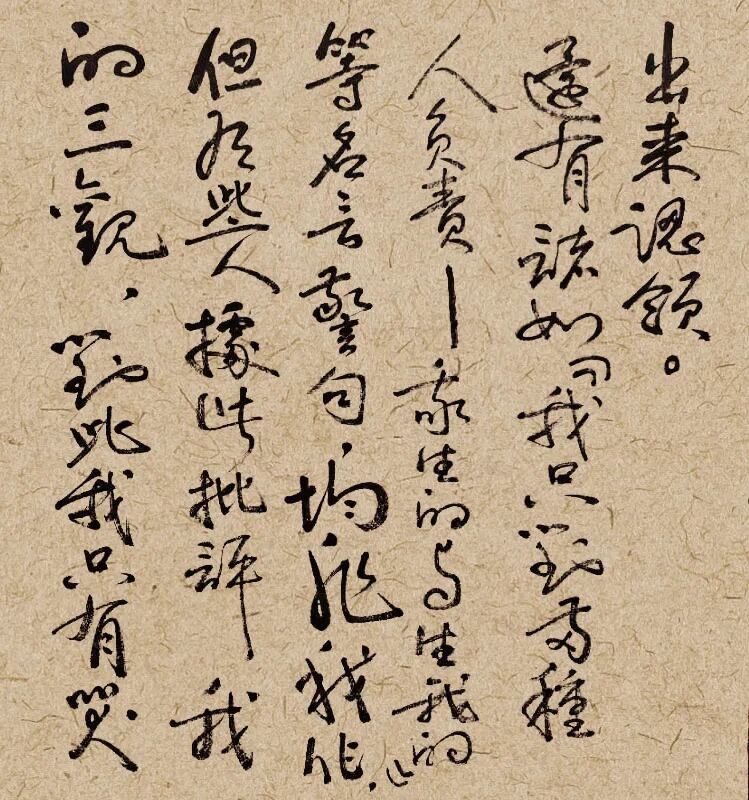 出来認領。
還有諸如「我只對兩種
人負責—我生的与生我的」
等名言警句，均非我作，
但有些人據此批評我
的三觀，對此我只有哭